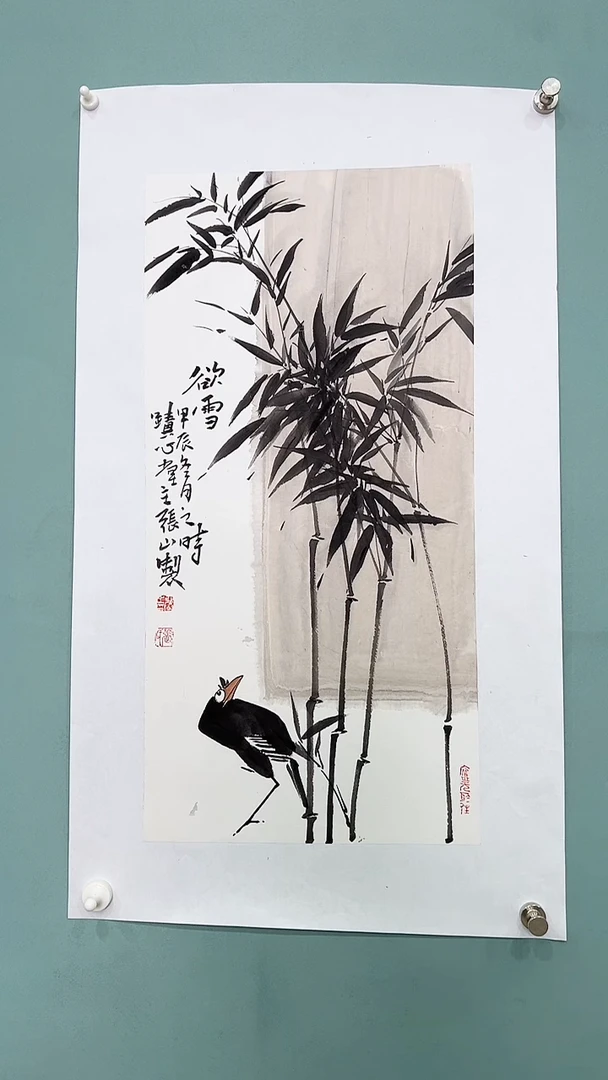 欲雪
甲辰冬月之時
心堂主張山製